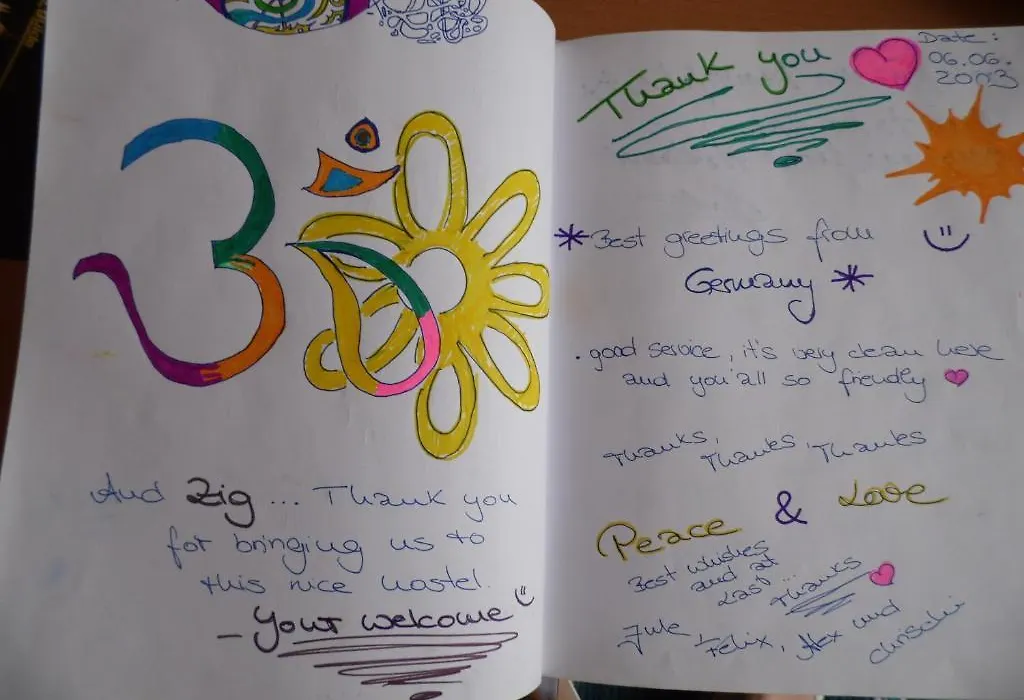 ॐ
And Zig ... Thank you
for bringing us to
this nice hostel.
– Your welcome
Thank you
Date:
06.06.
2003
*Best greetings from
Germany *
. good service, it's very clean here
and you'all so friendly
Thanks, Thanks, Thanks
Peace & Love
Best whishes
and at
Last ...
Thanks
Jule, Felix, Alex und